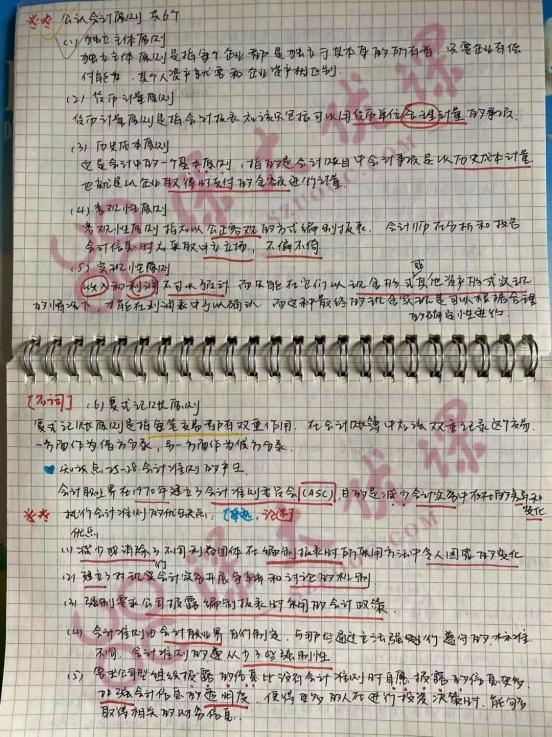 ※※ 公认会计原则 共6个
(1) 独立主体原则
独立主体原则是指每个企业都是独立于其本身的所有者，只要企业有偿
付能力，其个人资产就需和企业资产相区别.
(2) 货币计量原则
货币计量原则是指会计报表应该只包括可以用货币单位合理计量的事项.
(3) 历史成本原则
这是会计中的一个基本原则，指的是会计账目中会计事项是以历史成本计量
也就是以企业取得时支付的金额进行计量.
(4) 客观性原则
客观性原则指应以公正客观的方式编制报表. 会计师在分析和报告
会计信息时应采取中立立场，不偏不倚
(5) 实现性原则
收入和利润不可以预计，而只能在它们以现金形式或其他资产形式实现
的情况下，才能在利润表中予以确认. 而这种最终的现金实现是可以根据合理
的确定性进行.
[名词] (6) 复式记账原则
复式记账原则是指每笔交易都有双重作用. 在会计账簿中应该双重记录这个交易.
一方面作为借方分录，另一方面作为贷方分录.
知识点25-28.会计准则的产生
会计职业界在1970年建立了会计准则委员会(ASC)，目的是减少会计实务中存在的差异和变化
※※ 执行会计准则的优缺点：[单选，论述]
优点
(1) 减少或消除了不同利益团体在编制报表时所采用方法中令人困惑的变化
(2) 建立了对现实会计实务开展争辩和讨论的机制
(3) 强制要求公司披露编制报表时采用的会计政策.
(4) 会计准则由会计职业界自行制定，与那些通过立法强制执行遵守的标准
不同，会计准则的遵从少了些强制性
(5) 要求公司型组织披露的信息比没有会计准则时自愿披露的信息更多
加强会计信息的透明度，使得更多的人在进行投资决策时，能够
取得相关的财务信息.
大优课
SZUOOC.COM